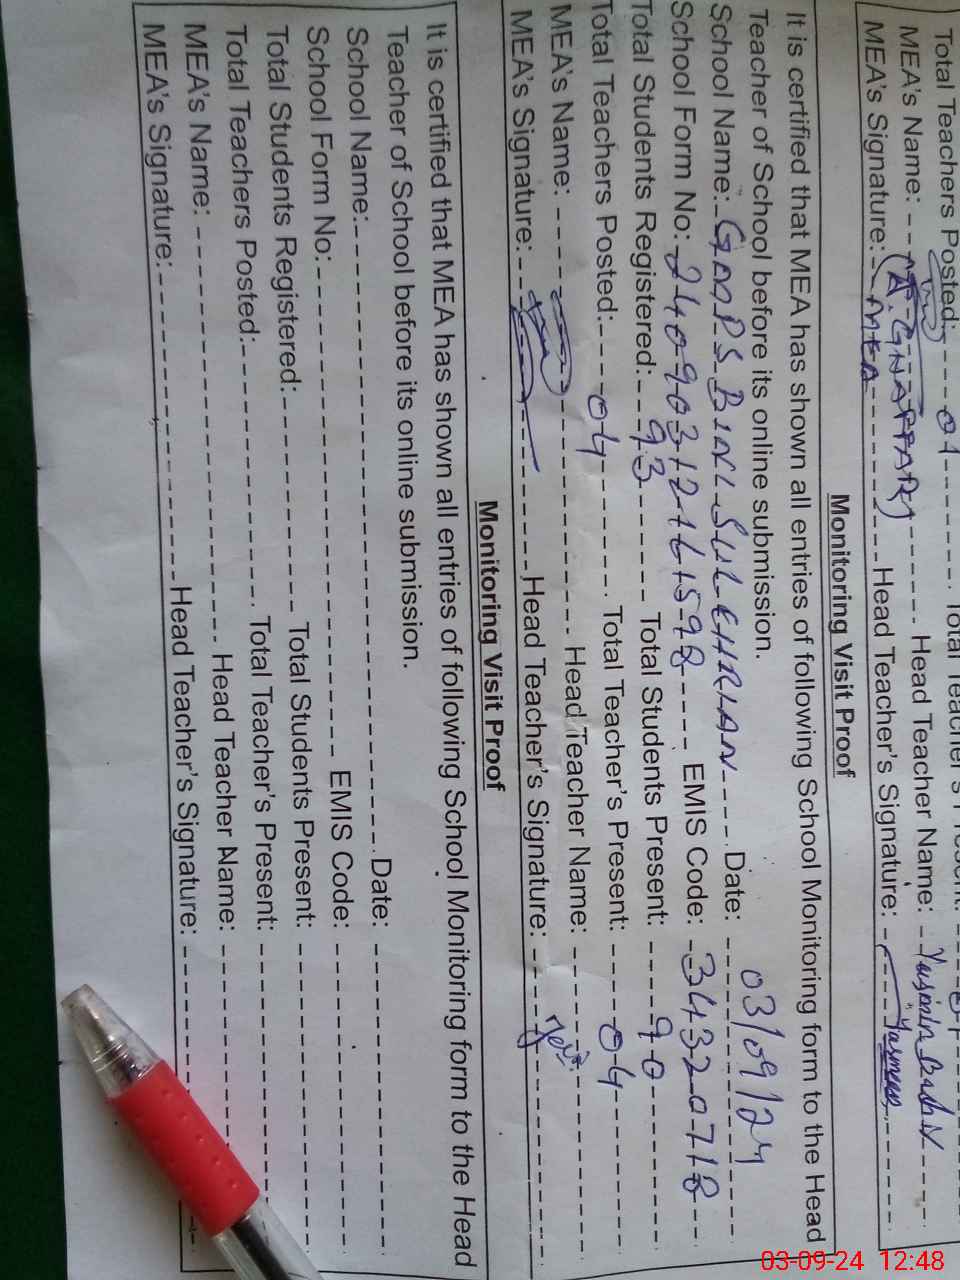 Total Teachers Posted: 01 Total Teacher's Present: 01
MEA's Name: (A. GHAFFAR) Head Teacher Name: Yasmin Bashir
MEA's Signature: MEA Head Teacher's Signature: Yasmeen
Monitoring Visit Proof
It is certified that MEA has shown all entries of following School Monitoring form to the Head
Teacher of School before its online submission.
School Name: GMPS BINI SULEHRIAN Date: 03/09/24
School Form No: 24090312161598 EMIS Code: 34320718
Total Students Registered: 93 Total Students Present: 90
Total Teachers Posted: 04 Total Teacher's Present: 04
MEA's Name: Head Teacher Name:
MEA's Signature: Head Teacher's Signature:
Monitoring Visit Proof
It is certified that MEA has shown all entries of following School Monitoring form to the Head
Teacher of School before its online submission.
School Name: Date:
School Form No: EMIS Code:
Total Students Registered: Total Students Present:
Total Teachers Posted: Total Teacher's Present:
MEA's Name: Head Teacher Name:
MEA's Signature: Head Teacher's Signature:
03-09-24 12:48